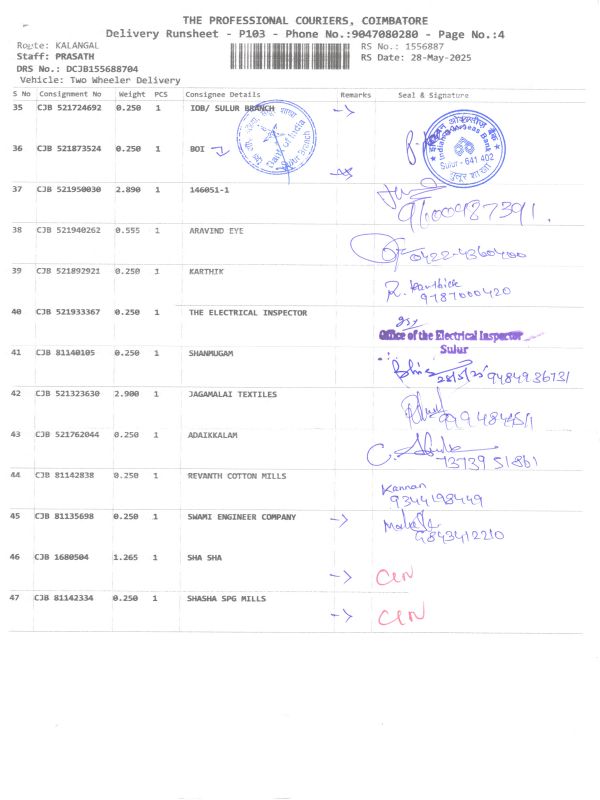 THE PROFESSIONAL COURIERS, COIMBATORE
Delivery Runsheet - P103 - Phone No.:9047080280 - Page No.:4
Route: KALANGAL RS No.: 1556887
Staff: PRASATH RS Date: 28-May-2025
DRS No.: DCJB155688704
Vehicle: Two Wheeler Delivery
S No Consignment No Weight PCS Consignee Details Remarks Seal & Signature
35 CJB 521724692 0.250 1 IOB/ SULUR BRANCH
Indian Overseas Bank
Sulur - 641 402
36 CJB 521873524 0.250 1 BOI
Bank of India
Sulur Branch
37 CJB 521950030 2.890 1 146051-1
9600987391.
38 CJB 521940262 0.555 1 ARAVIND EYE
0422-4360400
39 CJB 521892921 0.250 1 KARTHIK
R. Karthick
9787000420
40 CJB 521933367 0.250 1 THE ELECTRICAL INSPECTOR
Office of the Electrical Inspector
Sulur
41 CJB 81140105 0.250 1 SHANMUGAM
28/5/25 9484936731
42 CJB 521323630 2.900 1 JAGAMALAI TEXTILES
43 CJB 521762044 0.250 1 ADAIKKALAM
73739 51861
44 CJB 81142838 0.250 1 REVANTH COTTON MILLS
Kannan
9344198449
45 CJB 81135698 0.250 1 SWAMI ENGINEER COMPANY
9843412210
46 CJB 1680504 1.265 1 SHA SHA
47 CJB 81142334 0.250 1 SHASHA SPG MILLS